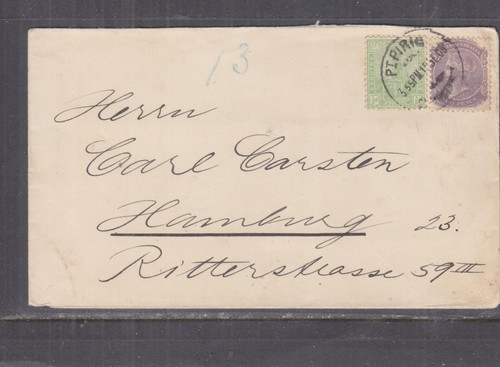 13
PT. PIRIE
Herrn
Carl Carsten
Hamburg 23.
Ritterstrasse 59 III